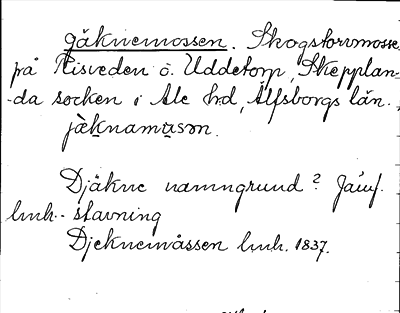 gäknemossen. Skogstorvmosse
på Risveden ö. Uddetorp, Skepplan-
-da socken i Ale hd, Älfsborgs län.
jäknamusən.
Djäkne namngrund? Jämf.
lmh.- stavning
Djeknemåssen lmh. 1837.